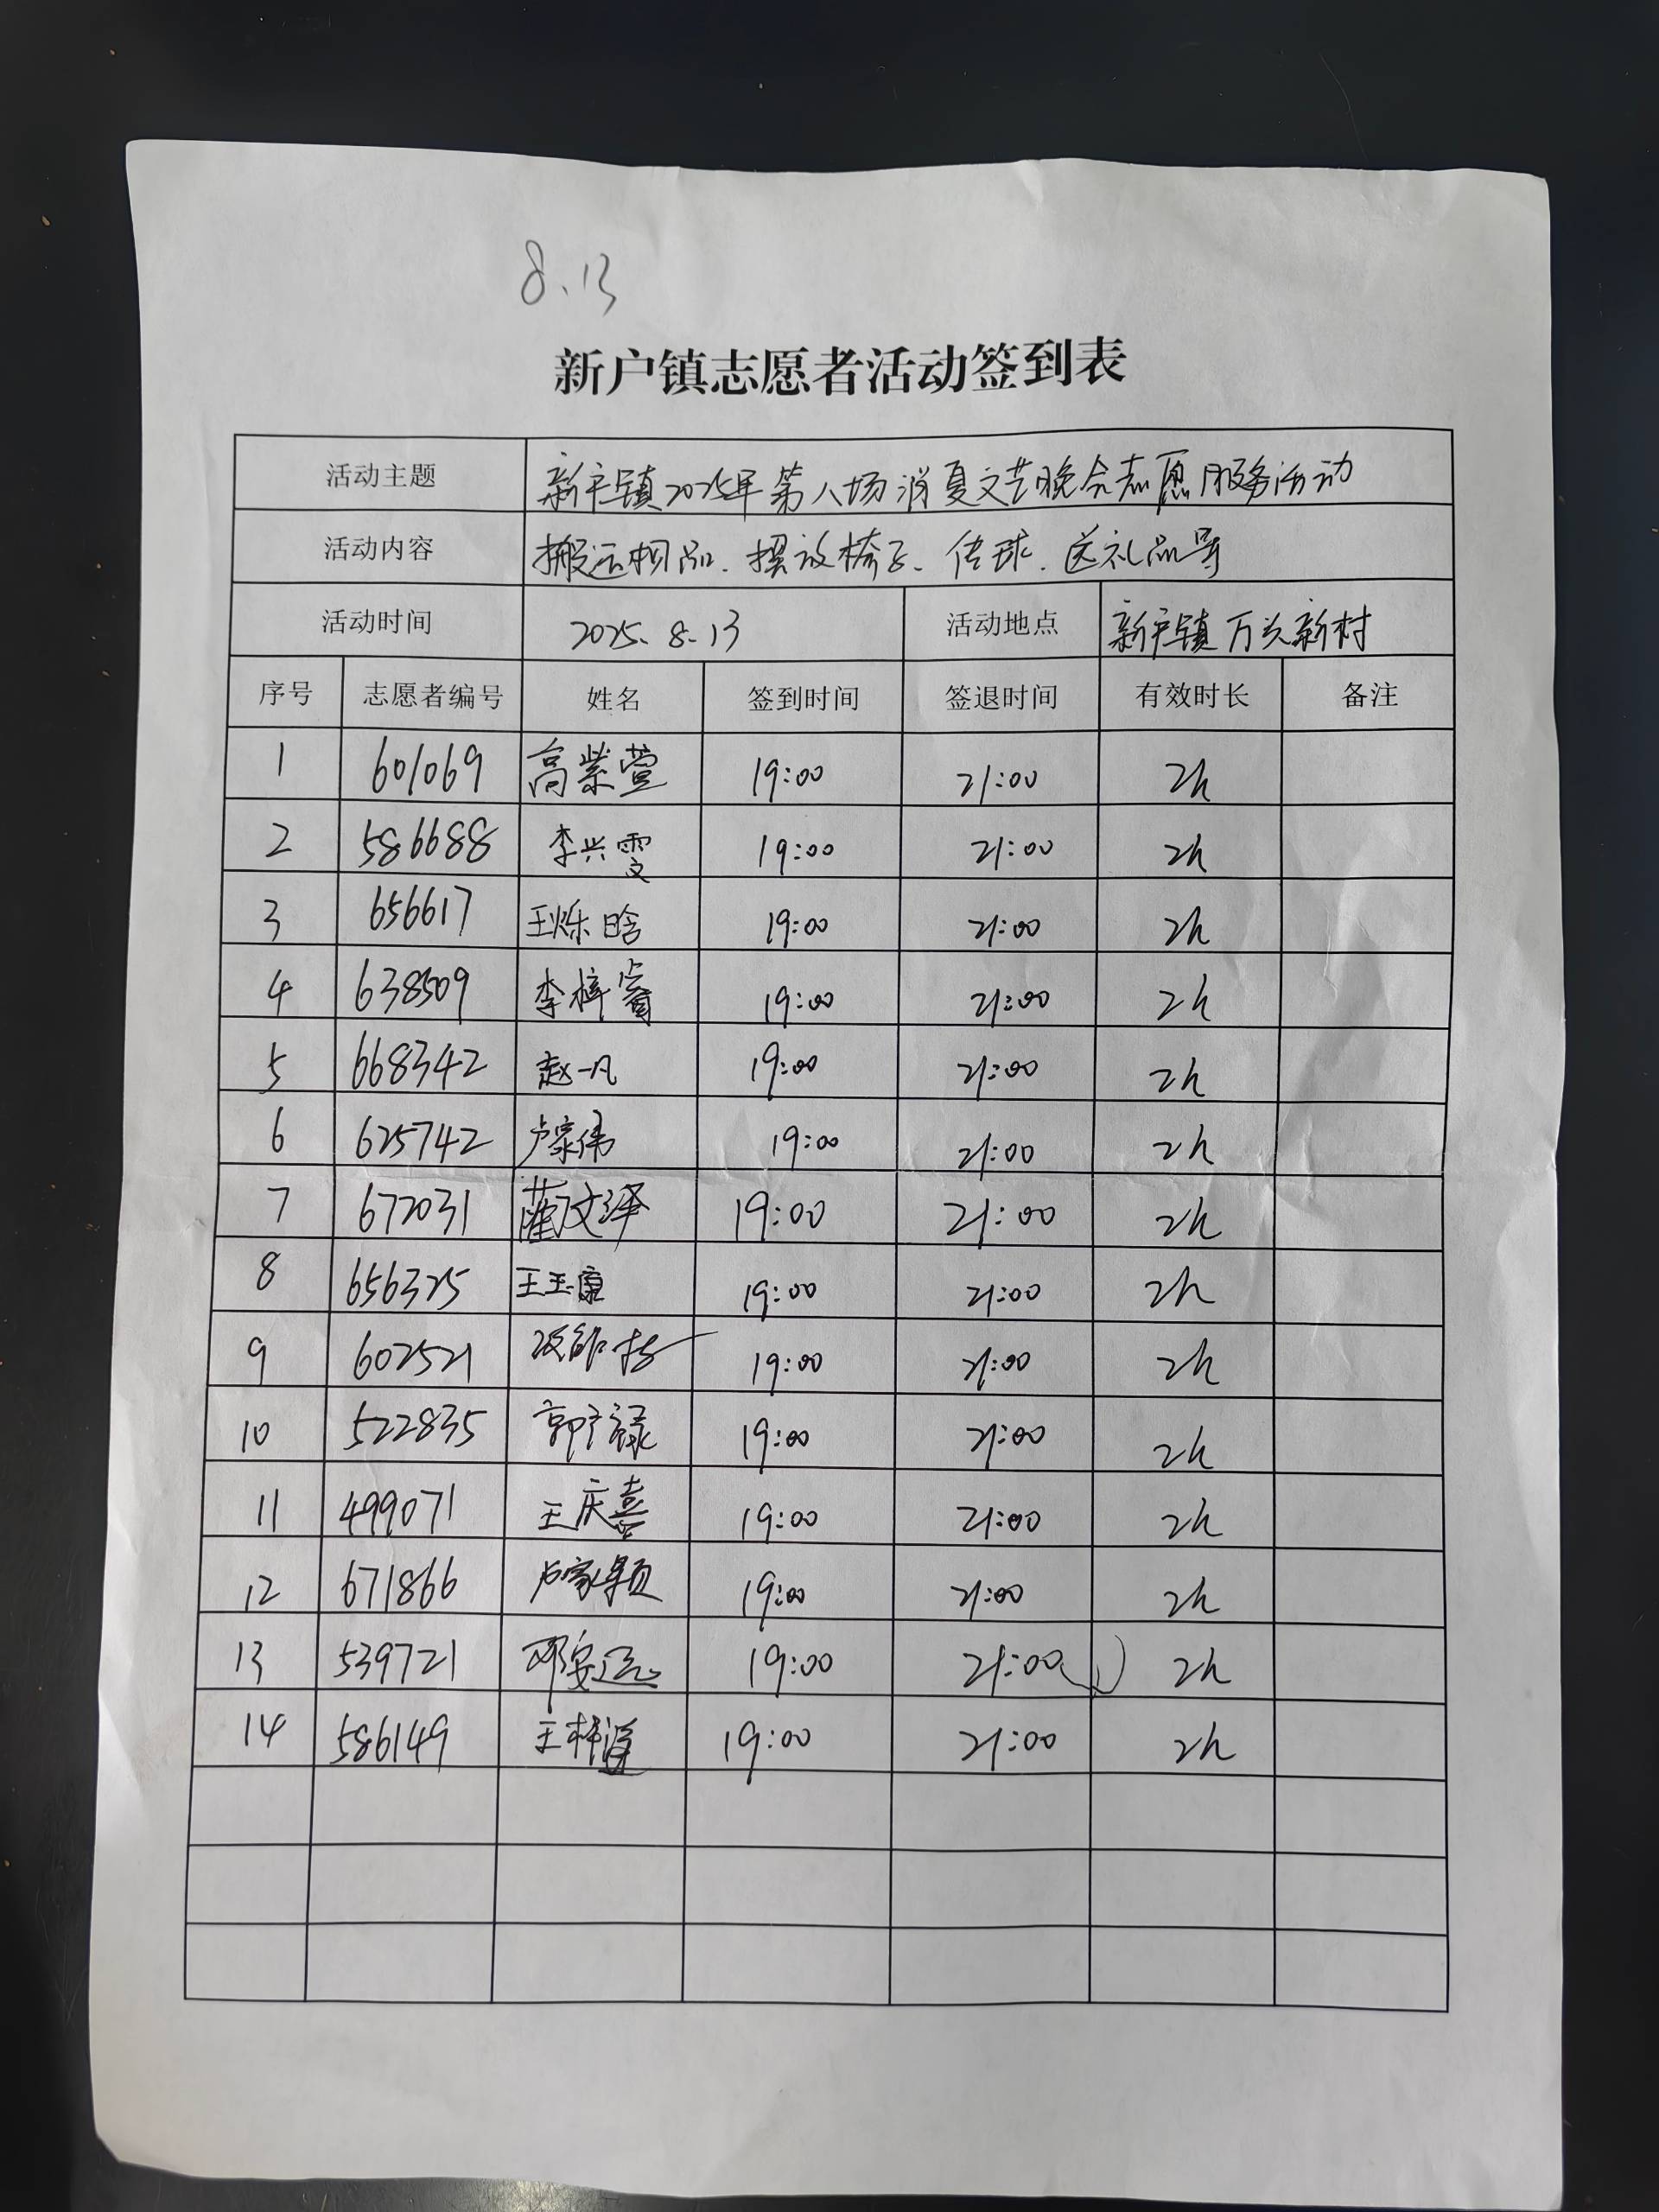 8.13
新户镇志愿者活动签到表
活动主题 新户镇2025年第八场消夏文艺晚会志愿服务活动
活动内容 搬运物品、摆放椅子、传球、送礼品等
活动时间 2025.8.13 活动地点 新户镇万头新村
序号 志愿者编号 姓名 签到时间 签退时间 有效时长 备注
1 601069 高紫萱 19:00 21:00 2h
2 586688 李兴雯 19:00 21:00 2h
3 656617 王烁晗 19:00 21:00 2h
4 638509 李梓睿 19:00 21:00 2h
5 668342 赵一凡 19:00 21:00 2h
6 625742 卢家伟 19:00 21:00 2h
7 672031 蔺文泽 19:00 21:00 2h
8 656325 王玉康 19:00 21:00 2h
9 602521 19:00 21:00 2h
10 522835 19:00 21:00 2h
11 499071 王庆喜 19:00 21:00 2h
12 671866 卢家颖 19:00 21:00 2h
13 539721 邓安远 19:00 21:00 2h
14 586149 19:00 21:00 2h